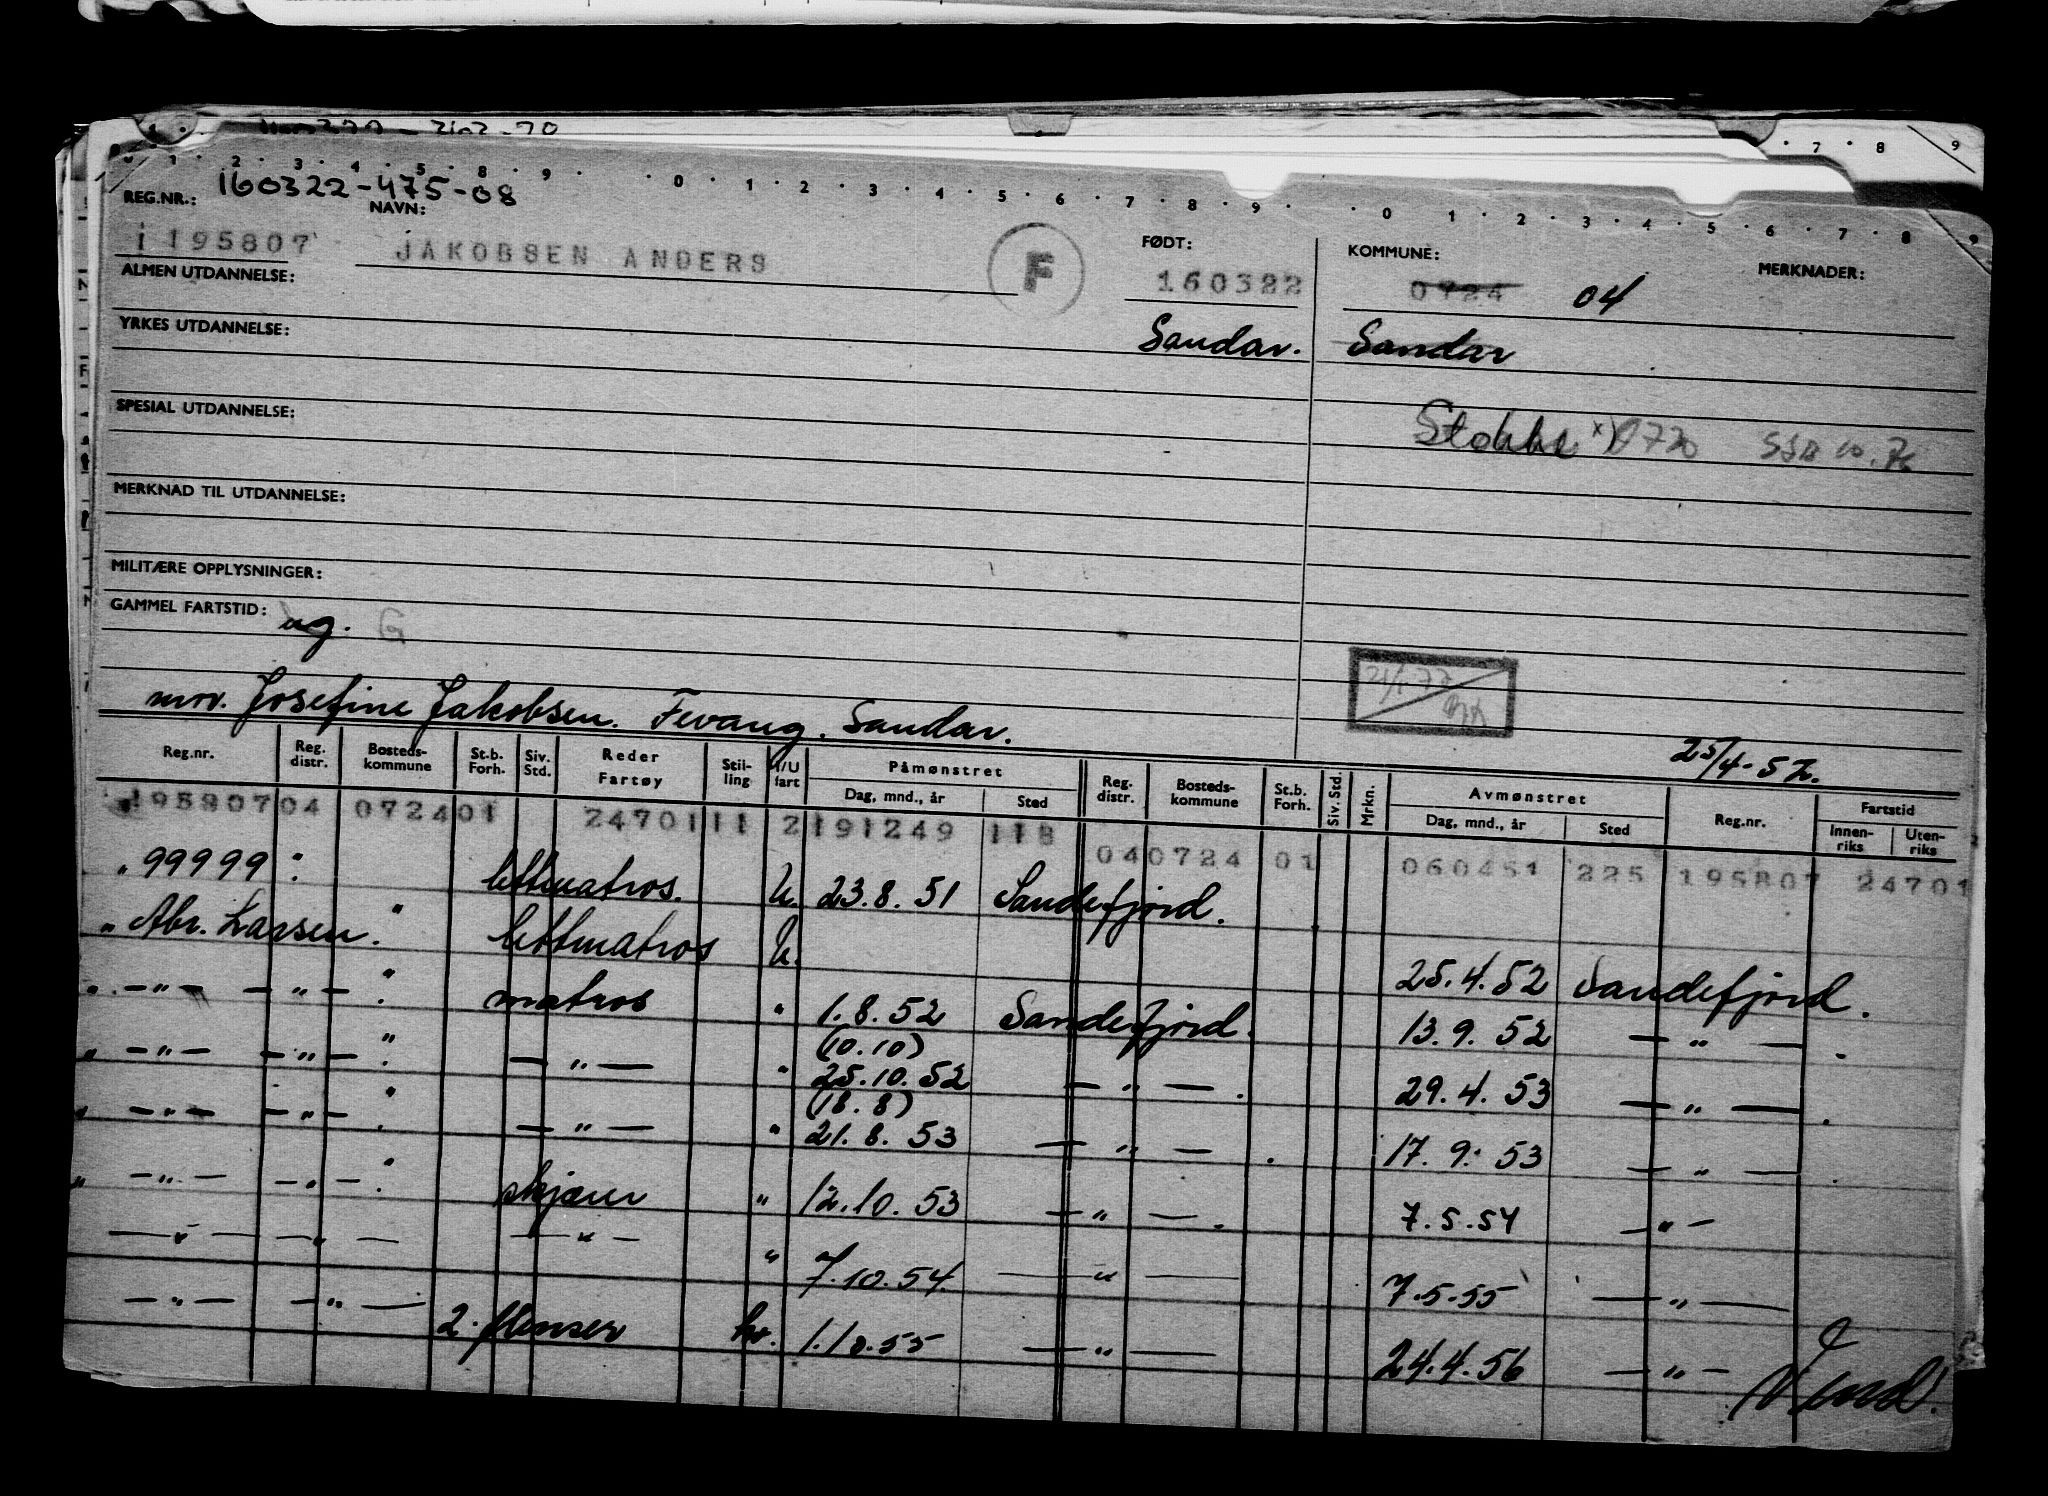 0 · 1 · 2 · 3 · 4 · 5 · 8 · 9 · · 0 · 1 · 2 · 3 · 4 · 5 · 6 · 7 · 8 · 9 · · 0 1 · 2 · 3 · 4 · 5 · 6 · 7 · 8 9
· 7 · 8 9
REG.NR.: 160322-475-08
NAVN: FØDT: KOMMUNE: MERKNADER:
i 195807 JAKOBSEN ANDERS F 160322 0724 04
ALMEN UTDANNELSE:
YRKES UTDANNELSE: Sandar. Sandar
SPESIAL UTDANNELSE: Stokke x) 0720
MERKNAD TIL UTDANNELSE:
MILITÆRE OPPLYSNINGER:
GAMMEL FARTSTID: ug. G
mor. Josefine Jakobsen. Fevang. Sandar.
25/4-57.
Reg.nr. Reg. distr. Bosteds-kommune St.b. Forh. Siv. Std. Reder Fartøy Stil-ling I/U fart Påmønstret Dag, mnd., år Sted Reg. distr. Bosteds-kommune St.b. Forh. Siv. Std. Mrkn. Avmønstret Dag, mnd., år Sted Reg.nr. Fartstid Innen-riks Uten-riks
195807 04 0724 01 24701 11 2 191249 118 04 0724 01 060451 225 195807 24701
" 99999 : lettmatros. U. 23.8.51 Sandefjord.
" Abr. Larsen. " lettmatros U. 25.4.52 Sandefjord.
" - " - - " - " . matros " 1.8.52 Sandefjord. 13.9.52 - " - .
(10.10)
" - " - - " - " . - " - " 25.10.52 - " - . 29.4.53 - " - .
(18.8)
" - " - - " - " . - " - " 21.8.53 - " - . 17.9.53 - " - .
" - " - - " - " . skjærer " 12.10.53 - " - . 7.5.54 - " -
- " - - " - - " - " 7.10.54. - " - 7.5.55 - " -
- " - - " - 2. flenser hv. 1.10.55 - " - 24.4.56 - " -
Vend!